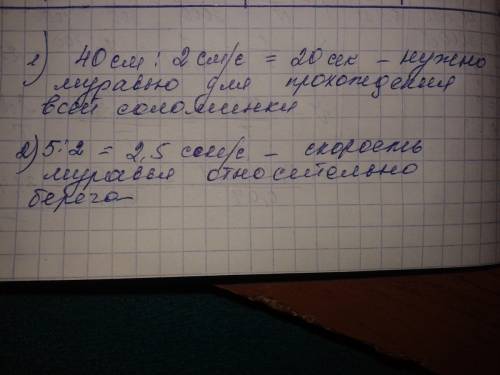 1) 40 см : 2 см/с = 20 сек – нужно
муравью для прохождения
всей соломинки
2) 5:2 = 2,5 сем/с – скорость
муравья относительно
берега